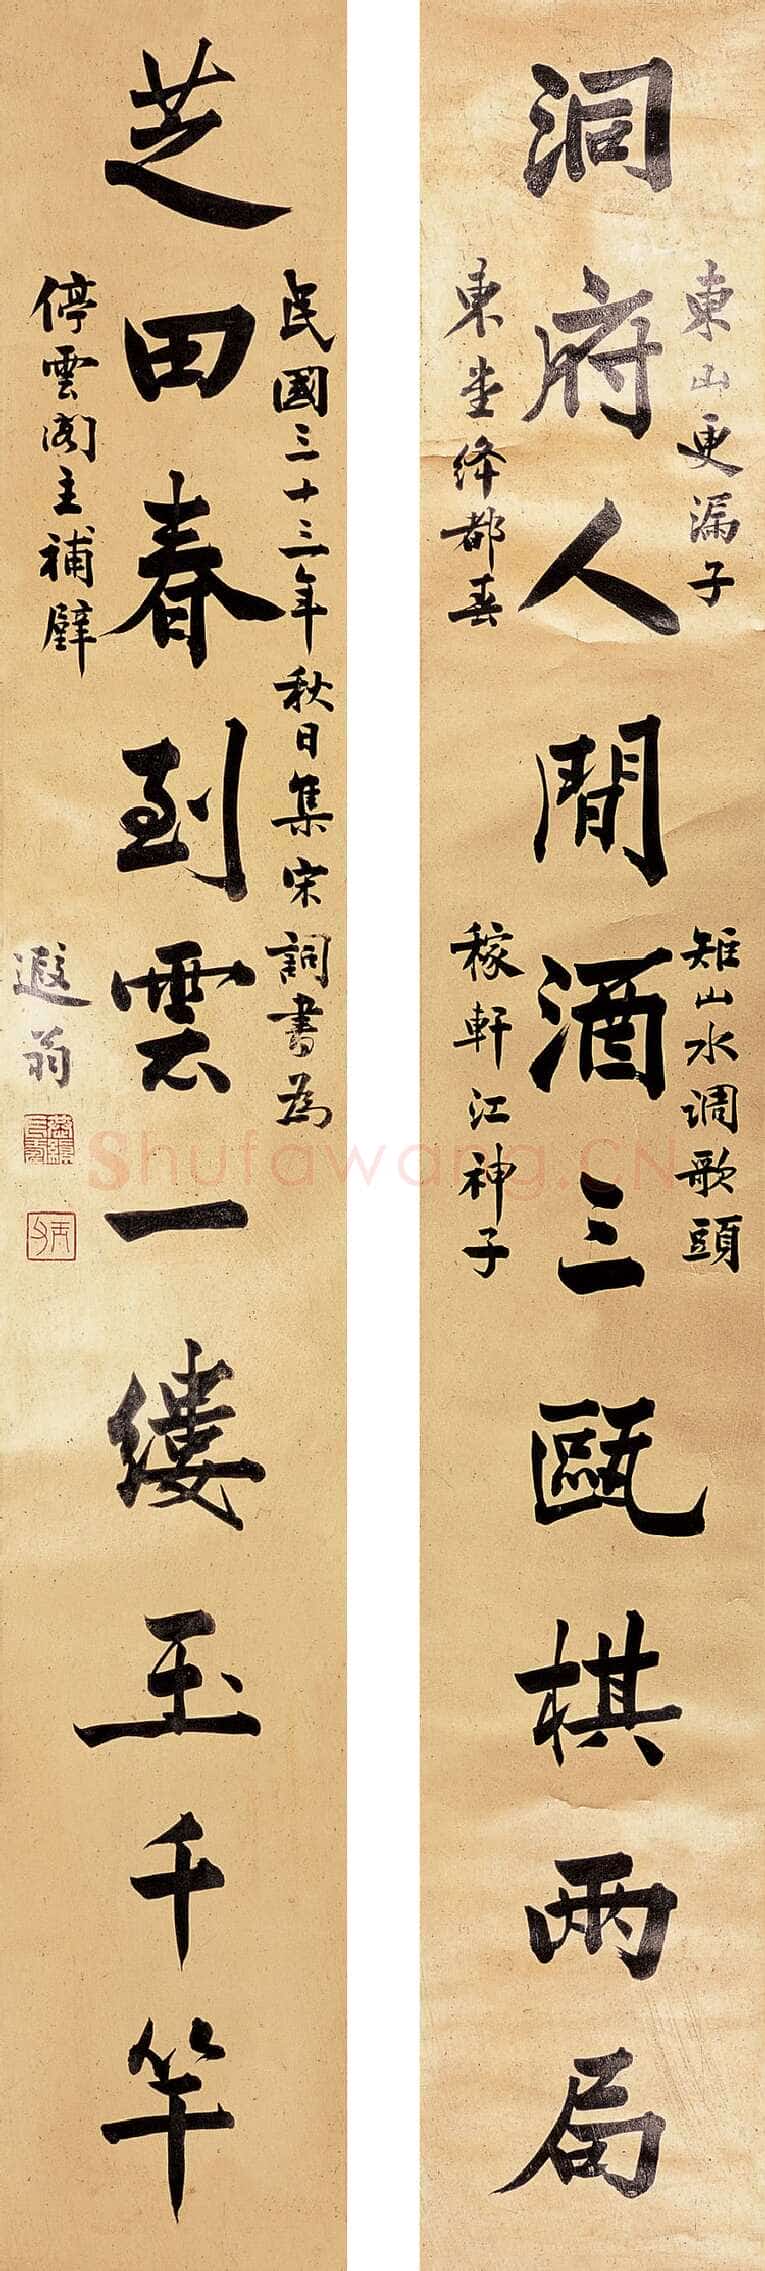 東山更漏子
矩山水調歌頭
洞府人間酒三甌棋兩局
東堂絳都春
稼軒江神子
民國三十三年秋日集宋詞書為
芝田春到雲一縷玉千竿
停雲閣主補壁
遐翁
Shufawang.CN